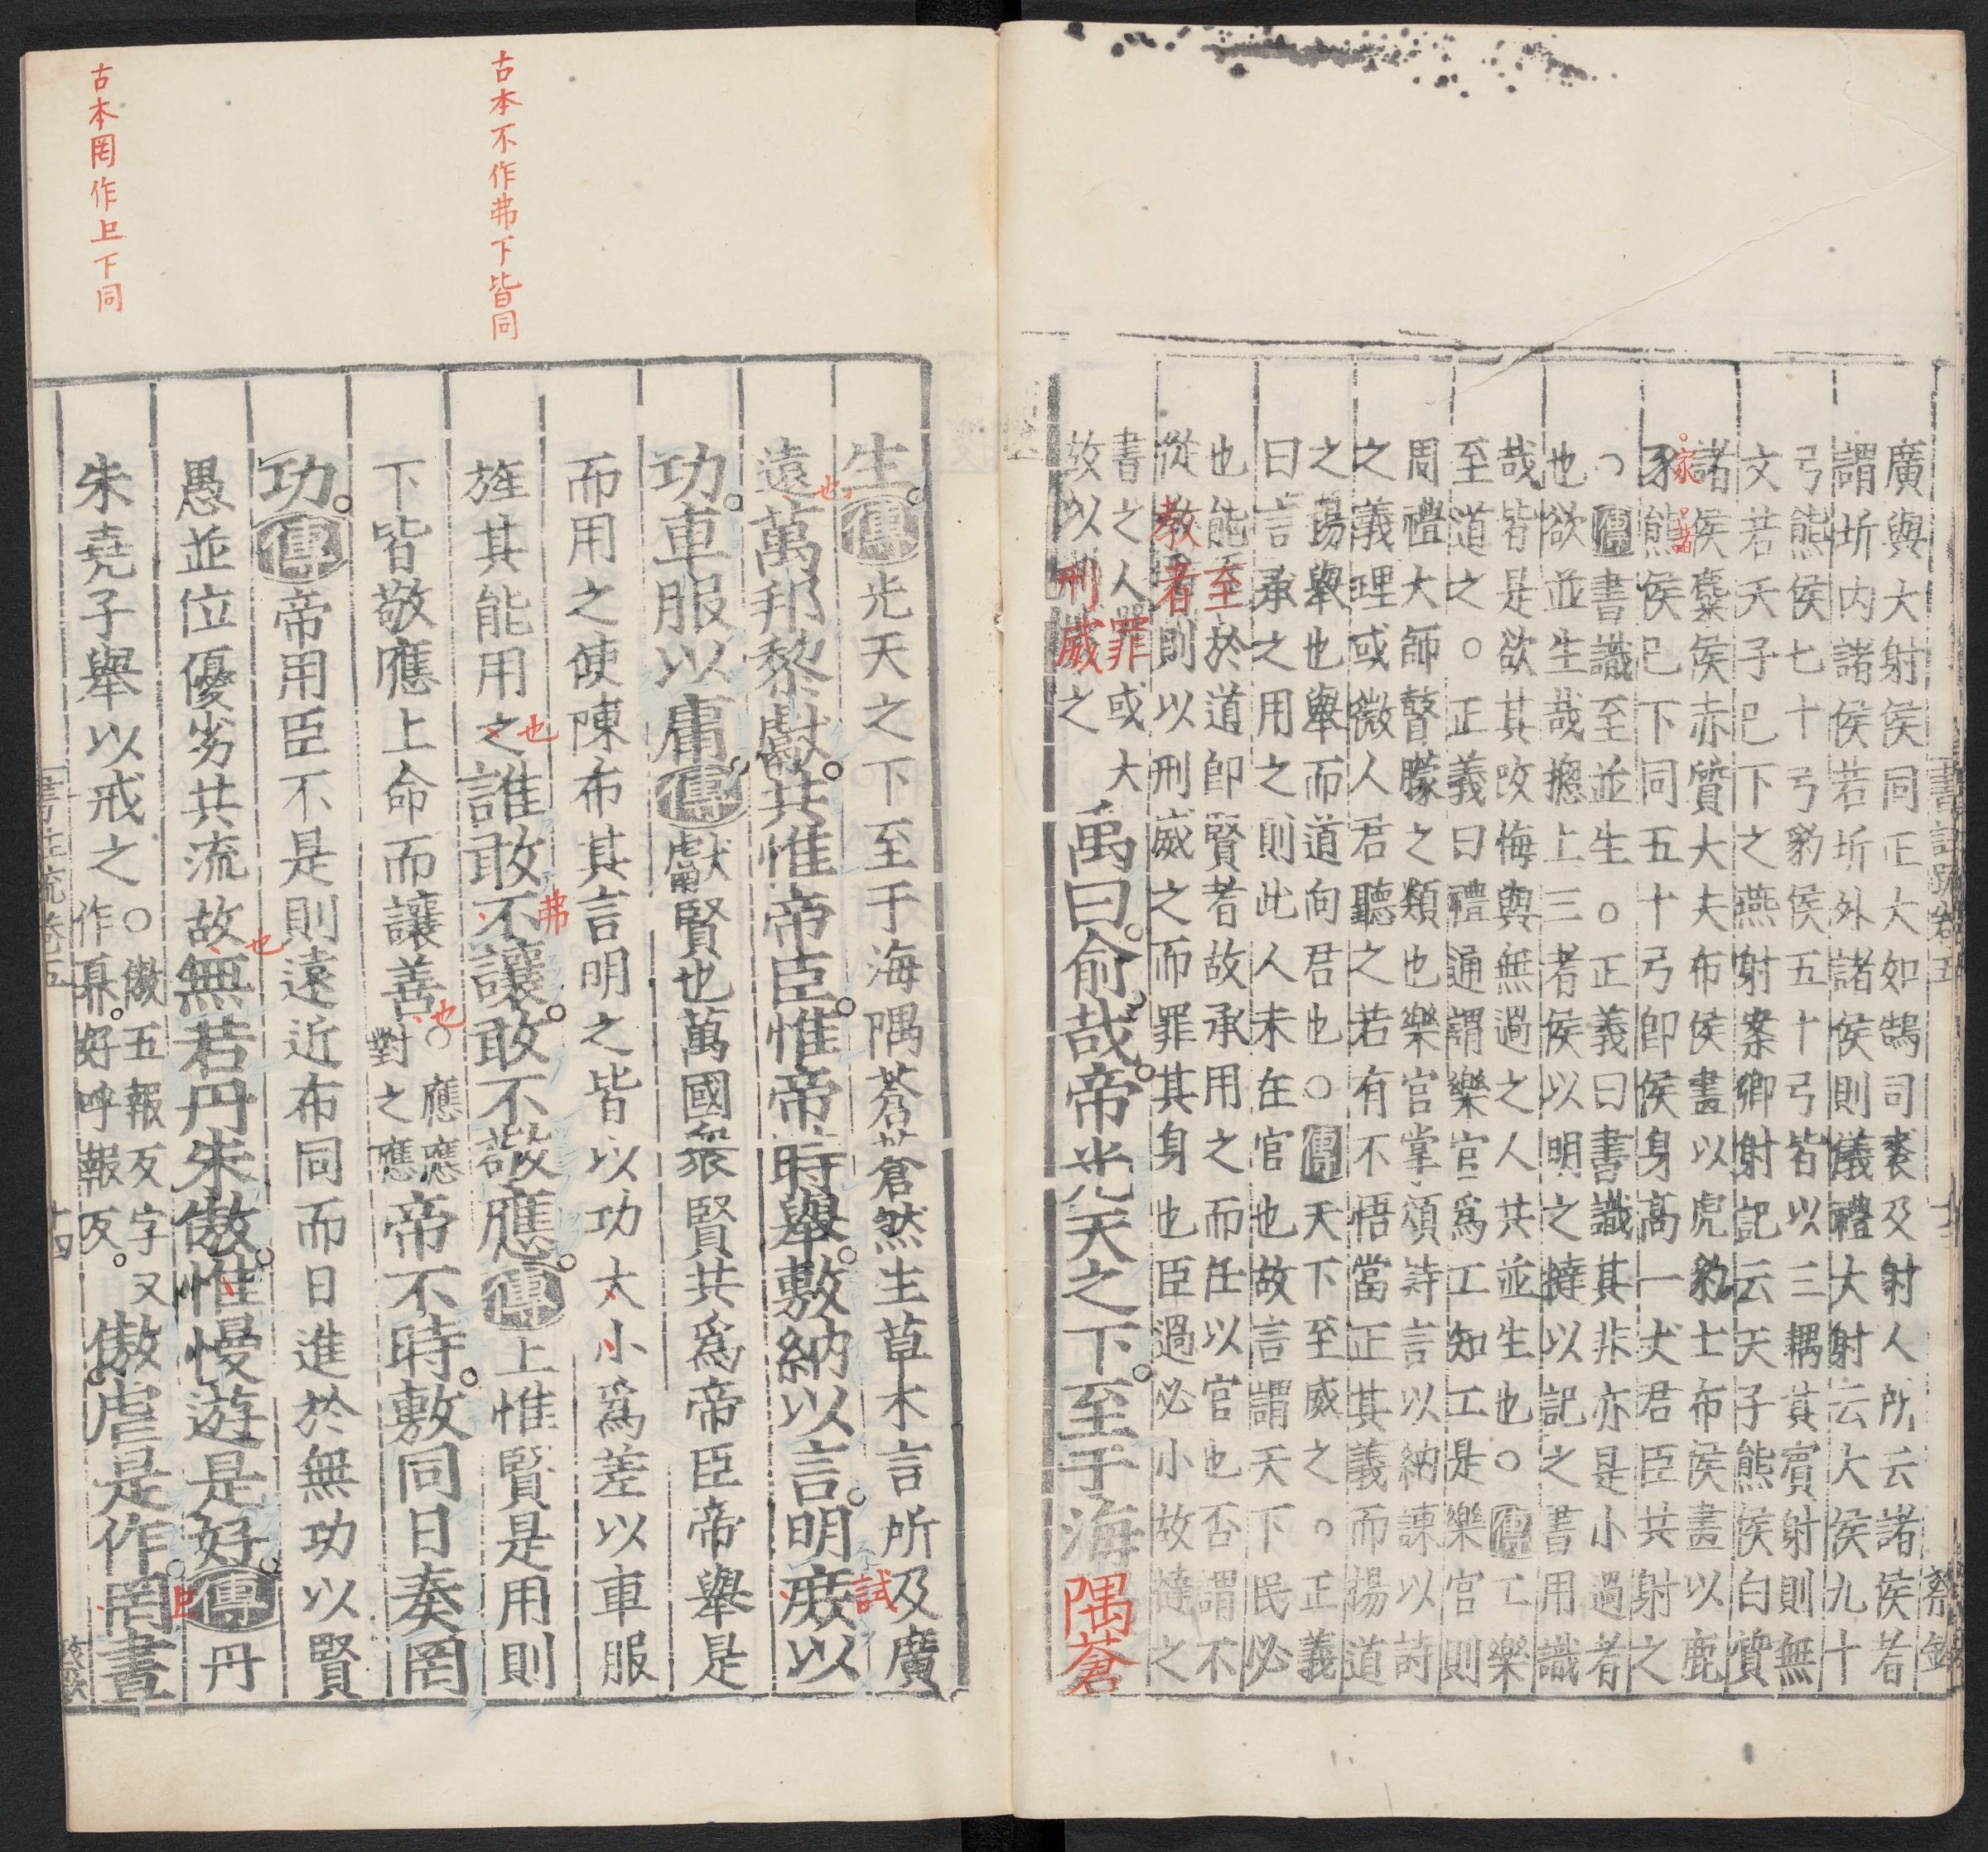 廣與大射侯同正大如鵠司裘及射人所云諸侯若
謂圻內諸侯若圻外諸侯則儀禮大射云大侯九十
弓熊侯七十弓豹侯五十弓皆以三耦其賓射則無
文若天子已下之燕射案鄉射記云天子熊侯白質
諸侯麋侯赤質大夫布侯畫以虎豹士布侯畫以鹿
豕熊侯已下同五十弓即侯身高一丈君臣共射之
家諸
○傳書識至並生○正義曰書識其非亦是小過者
也欲並生哉揔上三者侯以明之撻以記之書用識
哉皆是欲其改悔與無過之人共並生也○傳工樂
至道之○正義曰禮通謂樂官爲工知工是樂官則
周禮大師瞽矇之類也樂官掌頌詩言以納諫以詩
之義理或微人君聽之若有不悟當正其義而揚道
之揚舉也舉而道向君也○傳天下至威之○正義
曰言承之用之則此人未在官也故言謂天下民必
也能至於道即賢者故承用之而任以官也否謂不
從教者則以刑威之而罪其身也臣過必小故撻之
書之人罪或大
故以刑威之
禹曰俞哉帝光天之下至于海隅蒼
書註疏卷五
古本不作弗下皆同
古本罔作𠄏下同
生傳光天之下至于海隅蒼蒼然生草木言所及廣
遠也萬邦黎獻共惟帝臣惟帝時舉敷納以言明庶以
試
功車服以庸傳獻賢也萬國衆賢共爲帝臣帝舉是
而用之使陳布其言明之皆以功大小爲差以車服
旌其能用之也誰敢不讓敢不敬應傳上惟賢是用則
弗
下皆敬應上命而讓善也○應應對之應帝不時敷同日奏罔
功傳帝用臣不是則遠近布同而日進於無功以賢
愚並位優劣共流故也無若丹朱傲惟慢遊是好傳丹
朱堯子舉以戒之○傲五報反字又作奡好呼報反傲虐是作罔晝
書註疏卷五
十四